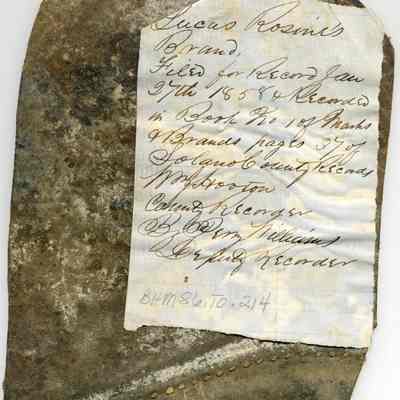 Lucas Rosine's
Brand,
Filed for Record Jan
27th 1858 & Recorded
in Book No 1 of Marks
& Brands pages 37 of
Solano County Records
County Recorder
By Perry Williams
Deputy Recorder
BHM86.TO.214